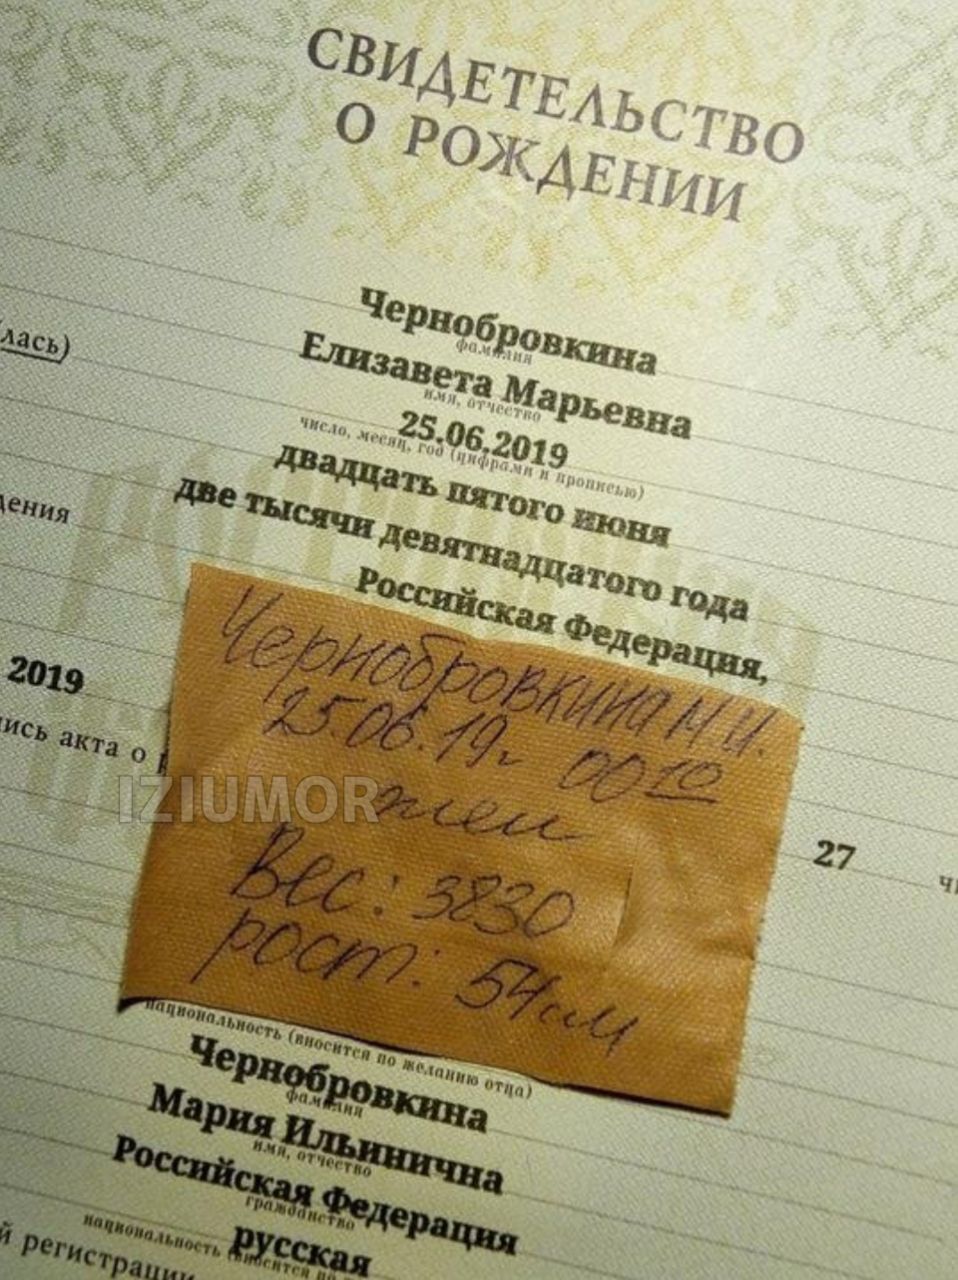 СВИДЕТЕЛЬСТВО
О РОЖДЕНИИ
Чернобровкина
фамилия
лась)
Елизавета Марьевна
имя, отчество
25.06.2019
число, месяц, год (цифрами и прописью)
двадцать пятого июня
две тысячи девятнадцатого года
дения
Российская Федерация,
Чернобровкина М.И.
25.06.19г 00 10
жен
Вес: 3830
рост: 54см
2019
ись акта о р
IZIUMOR
27
чи
национальность (вносится по желанию отца)
Чернобровкина
фамилия
Мария Ильинична
имя, отчество
Российская Федерация
гражданство
русская
национальность (вносится по
й регистрации